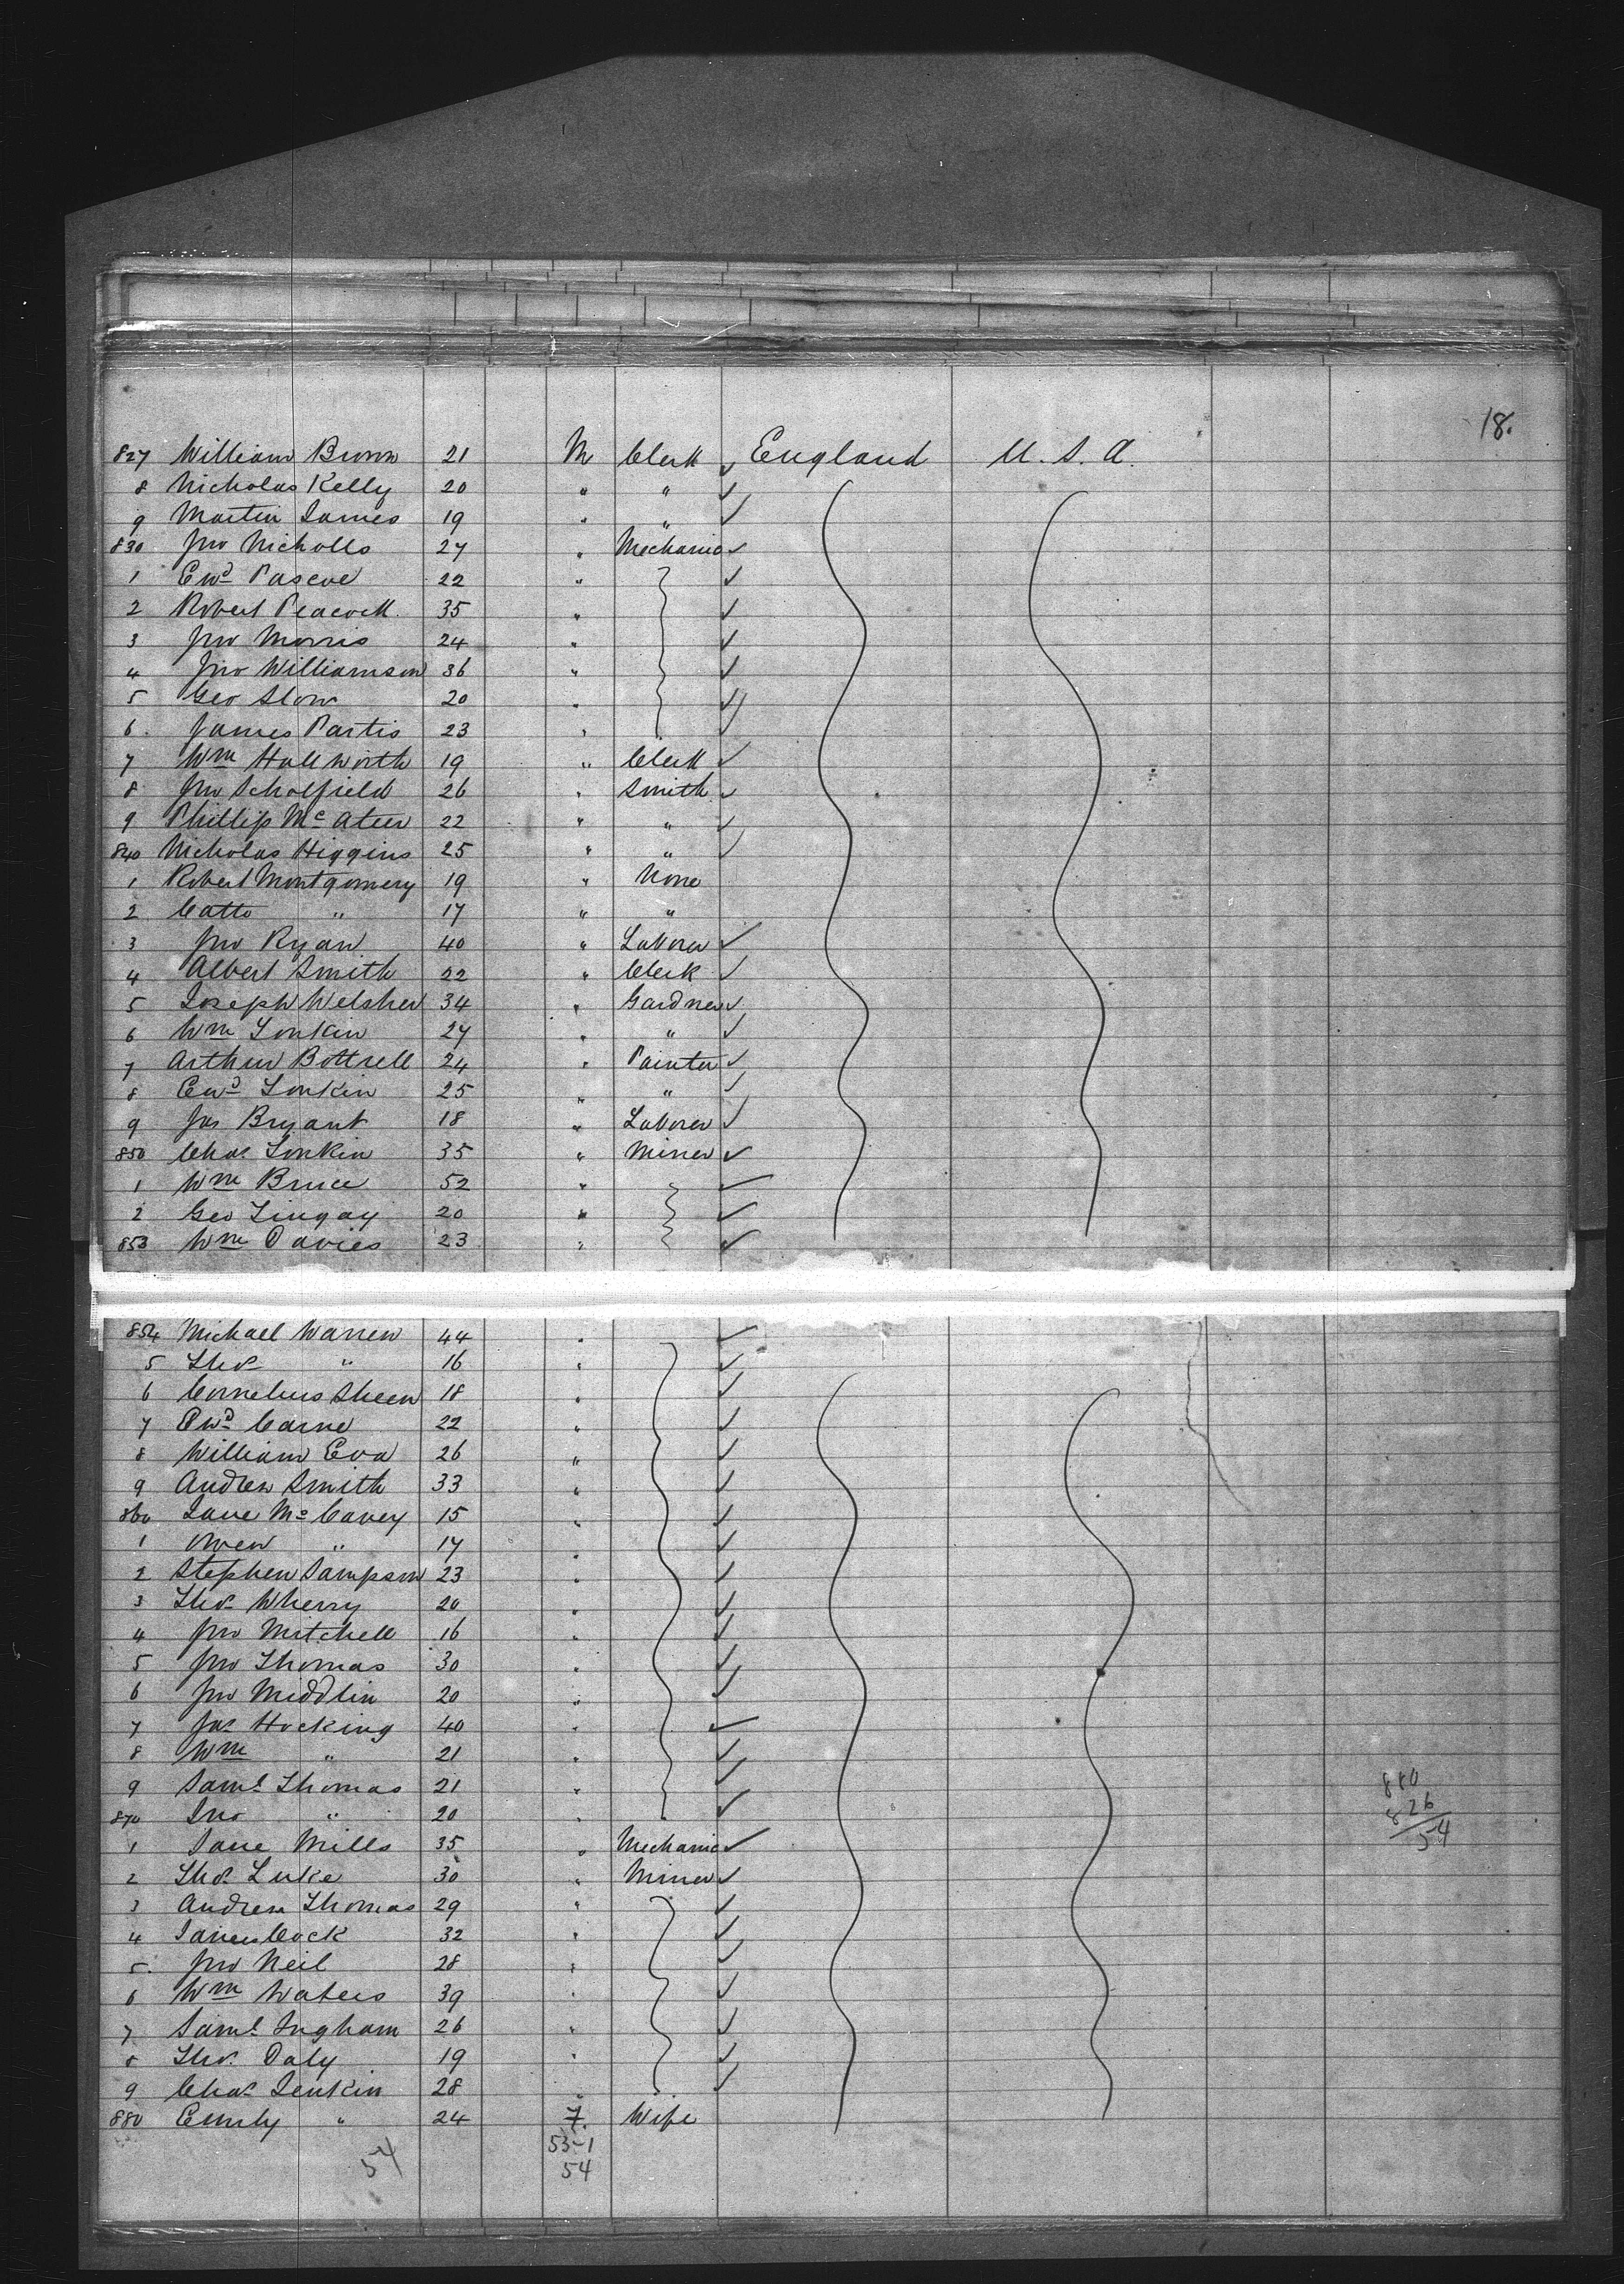 18.
827 William Brown 21 M Clerk ✓ England U.S.A.
8 Nicholas Kelly 20 " " ✓
9 Martin James 19 " " ✓
830 Jno Nicholls 27 " Mechanic ✓
1 Ewd Pascoe 22 " ✓
2 Robert Peacock 35 " ✓
3 Jno Morris 24 " ✓
4 Jno Williamson 36 " ✓
5 Geo Slow 20 " ✓
6 James Partis 23 " ✓
7 Wm Hallworth 19 " Clerk ✓
8 Jno Scholfield 26 " Smith ✓
9 Phillip McAteer 22 " " ✓
840 Nicholas Higgins 25 " " ✓
1 Robert Montgomery 19 " None
2 Catto " 17 " "
3 Jno Ryan 40 " Laborer ✓
4 Albert Smith 22 " Clerk ✓
5 Joseph Welsher 34 " Gardner ✓
6 Wm Tonkin 27 " " ✓
7 Arthur Bottrell 24 " Painter ✓
8 Ewd Tonkin 25 " " ✓
9 Jas Bryant 18 " Laborer ✓
850 Chas Tonkin 35 " Miner ✓
1 Wm Bruce 52 " ✓
2 Geo Tingay 20 " ✓
853 Wm Davies 23 " ✓
854 Michael Warren 44 " ✓
5 Thos " 16 " ✓
6 Cornelius Sheen 18 " ✓
7 Ewd Carne 22 " ✓
8 William Eva 26 " ✓
9 Andrew Smith 33 " ✓
860 Jane McCavey 15 " ✓
1 Owen " 17 " ✓
2 Stephen Sampson 23 " ✓
3 Thos Wherry 20 " ✓
4 Jno Mitchell 16 " ✓
5 Jno Thomas 30 " ✓
6 Jno Middlin 20 " ✓
7 Jas Hocking 40 " ✓
8 Wm " 21 " ✓
9 Saml Thomas 21 " ✓
870 Jno " 20 " ✓
1 Jane Mills 35 " Mechanic ✓
2 Thos Luke 30 " Miner ✓
3 Andrew Thomas 29 " ✓
4 James Cock 32 " ✓
5 Jno Neil 28 " ✓
6 Wm Waters 39 " ✓
7 Saml Ingham 26 " ✓
8 Thos Daly 19 " ✓
9 Chas Jenkin 28 " ✓
880 Emily " 24 F. Wife
880
826
54
53-1
54 54